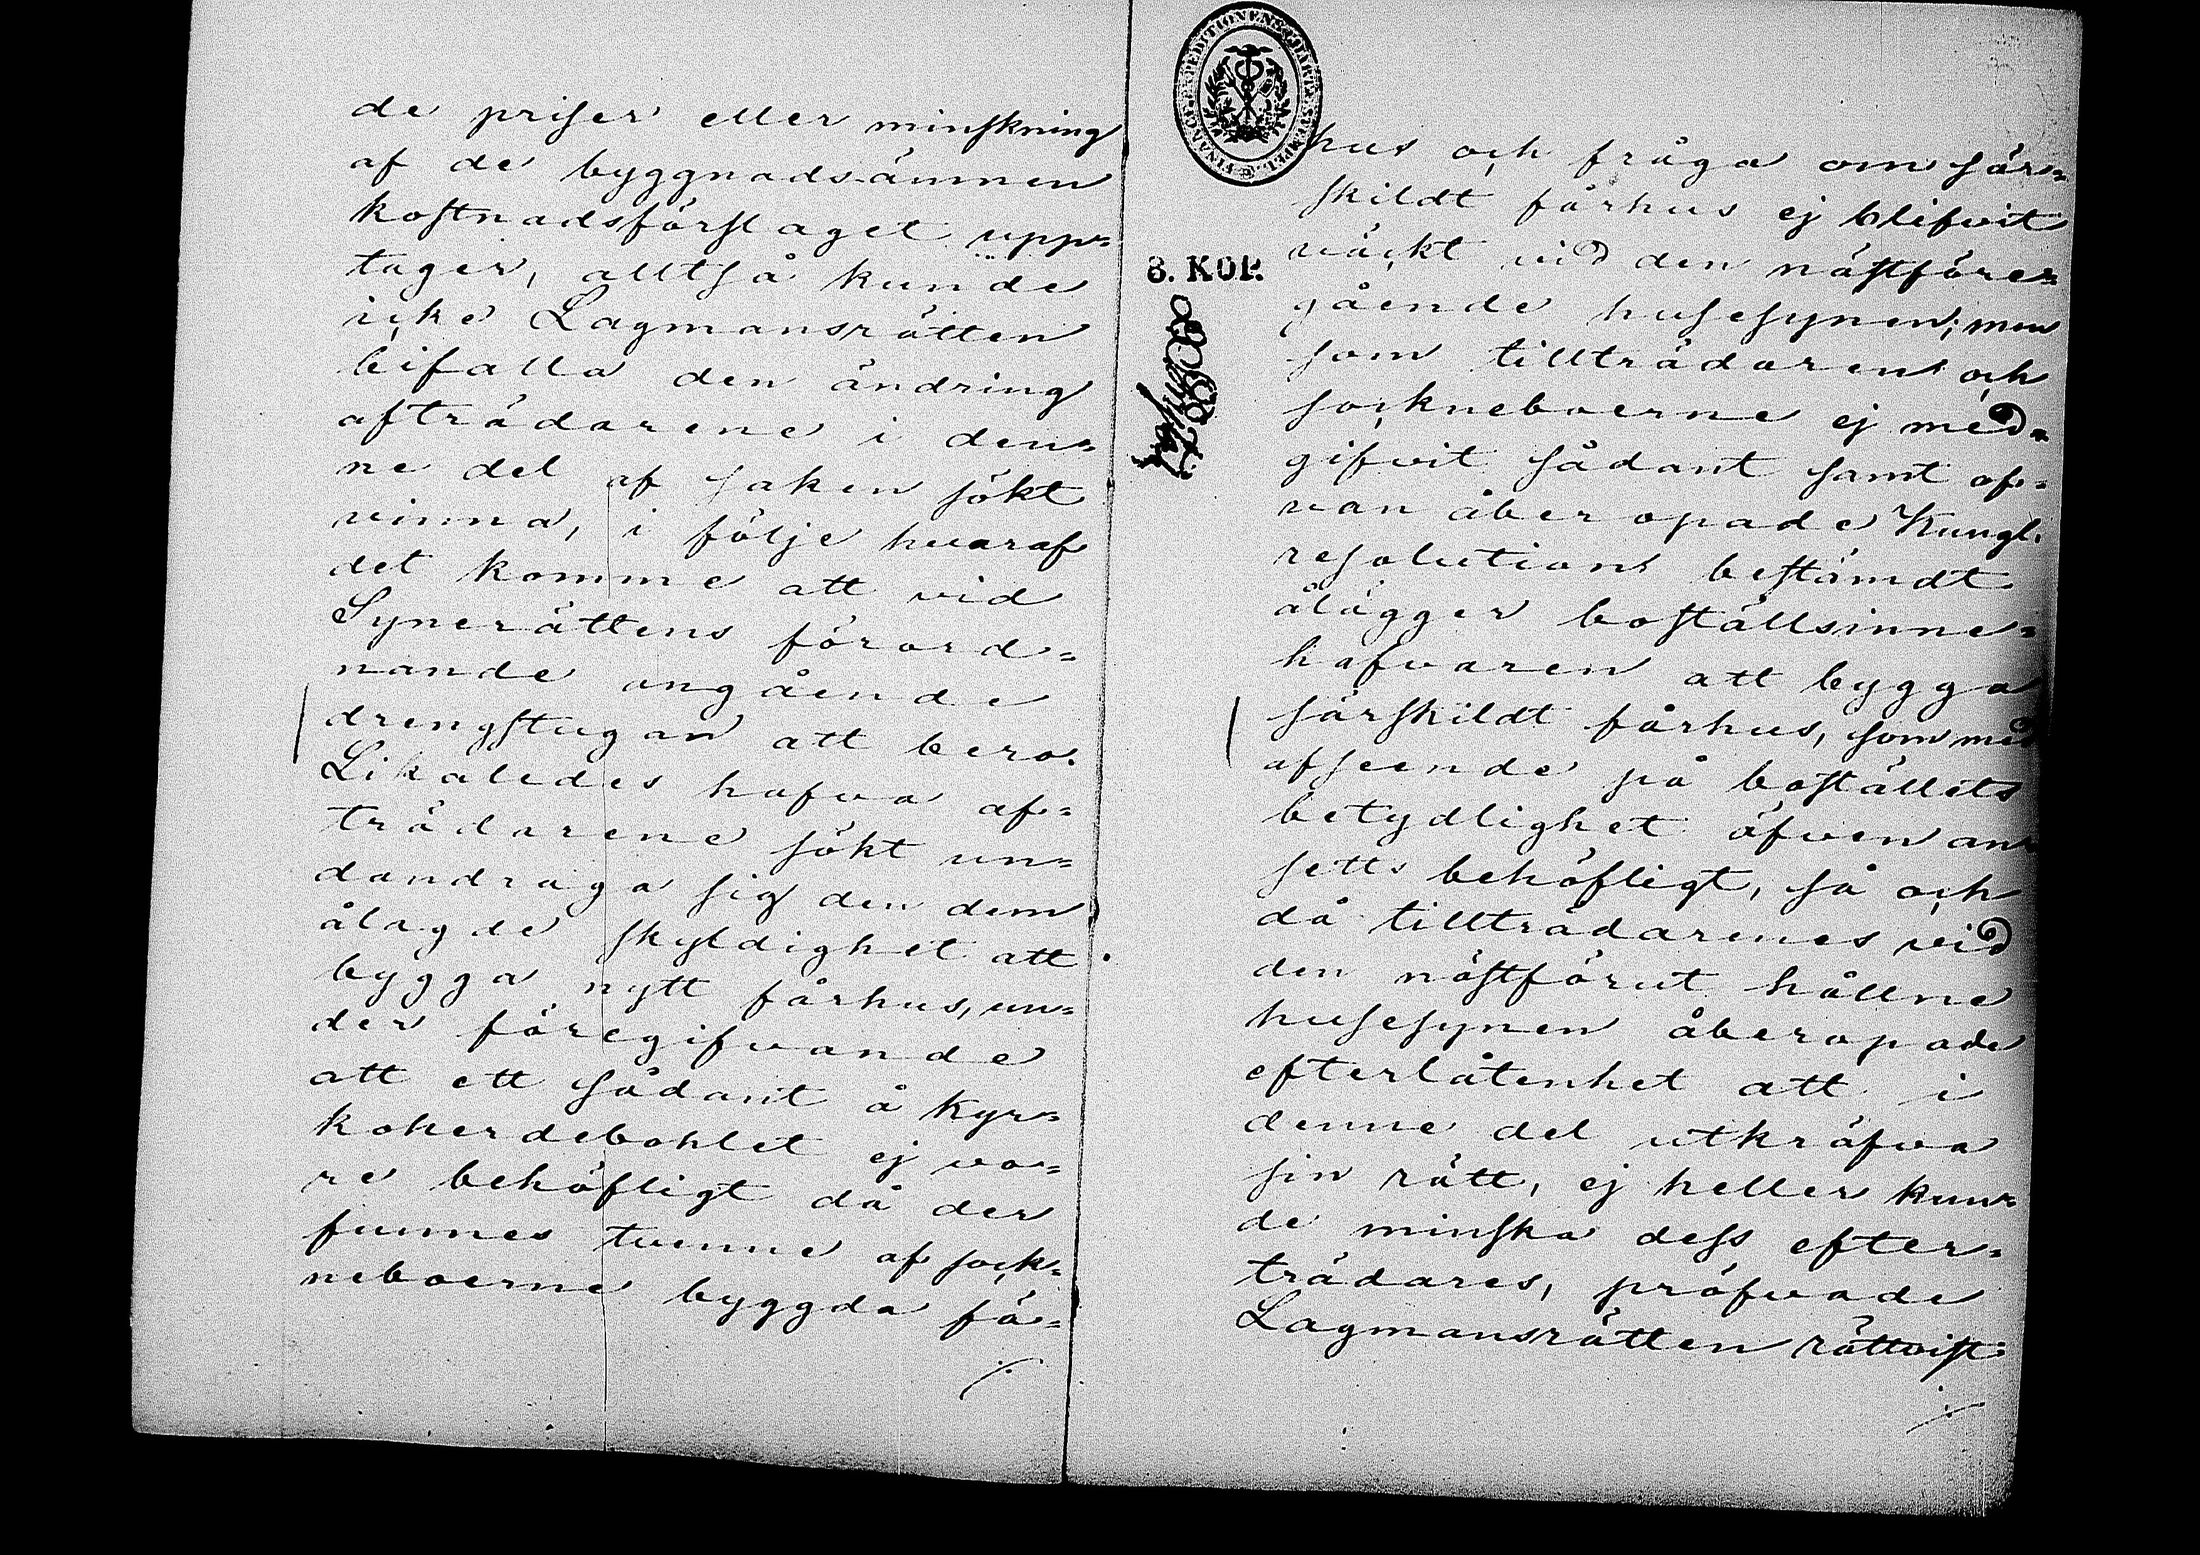 de priser eller minskning
af de byggnadsämnen
kostnadsförslaget upp=
tager, alltså kunde
icke Lagmansrätten
bifalla den ändring
afträdarene i den=
ne del af saken sökt
vinna, i följe hvaraf
det komme att vid
Synerättens förord=
nande angående
drengstugan att bero.
Likaledes hafva af=
trädarene sökt un=
dandraga sig den dem
ålagde skyldighet att
bygga nytt fårhus, un=
der föregifvande
att ett sådant å Kyr=
koherdebohlet ej va=
re behöfligt då der
funnes tvenne af sock=
neboerne byggda fä=
./.
FINANCE EXPEDITIONENS CHARTÆ STEMPEL
8. KOP.
hus och fråga om sär=
skildt fårhus ej blifvit
väckt vid den nästföre=
gående husesynen; men
som tillträdaren och
sockneboerne ej med=
gifvit sådant samt of=
van åberopade Kungl.
resolution bestämdt
ålägger boställsinne=
hafvaren att bygga
särskildt fårhus, som med
afseende på boställets
betydlighet äfven an=
setts behöfligt, så och
då tillträdarenes vid
den nästförut hållne
husesynen åberopade
efterlåtenhet att i
denne del utkräfva
sin rätt, ej heller kun=
de minska dess efter=
trädares, pröfvade
Lagmansrätten rättvist
./.